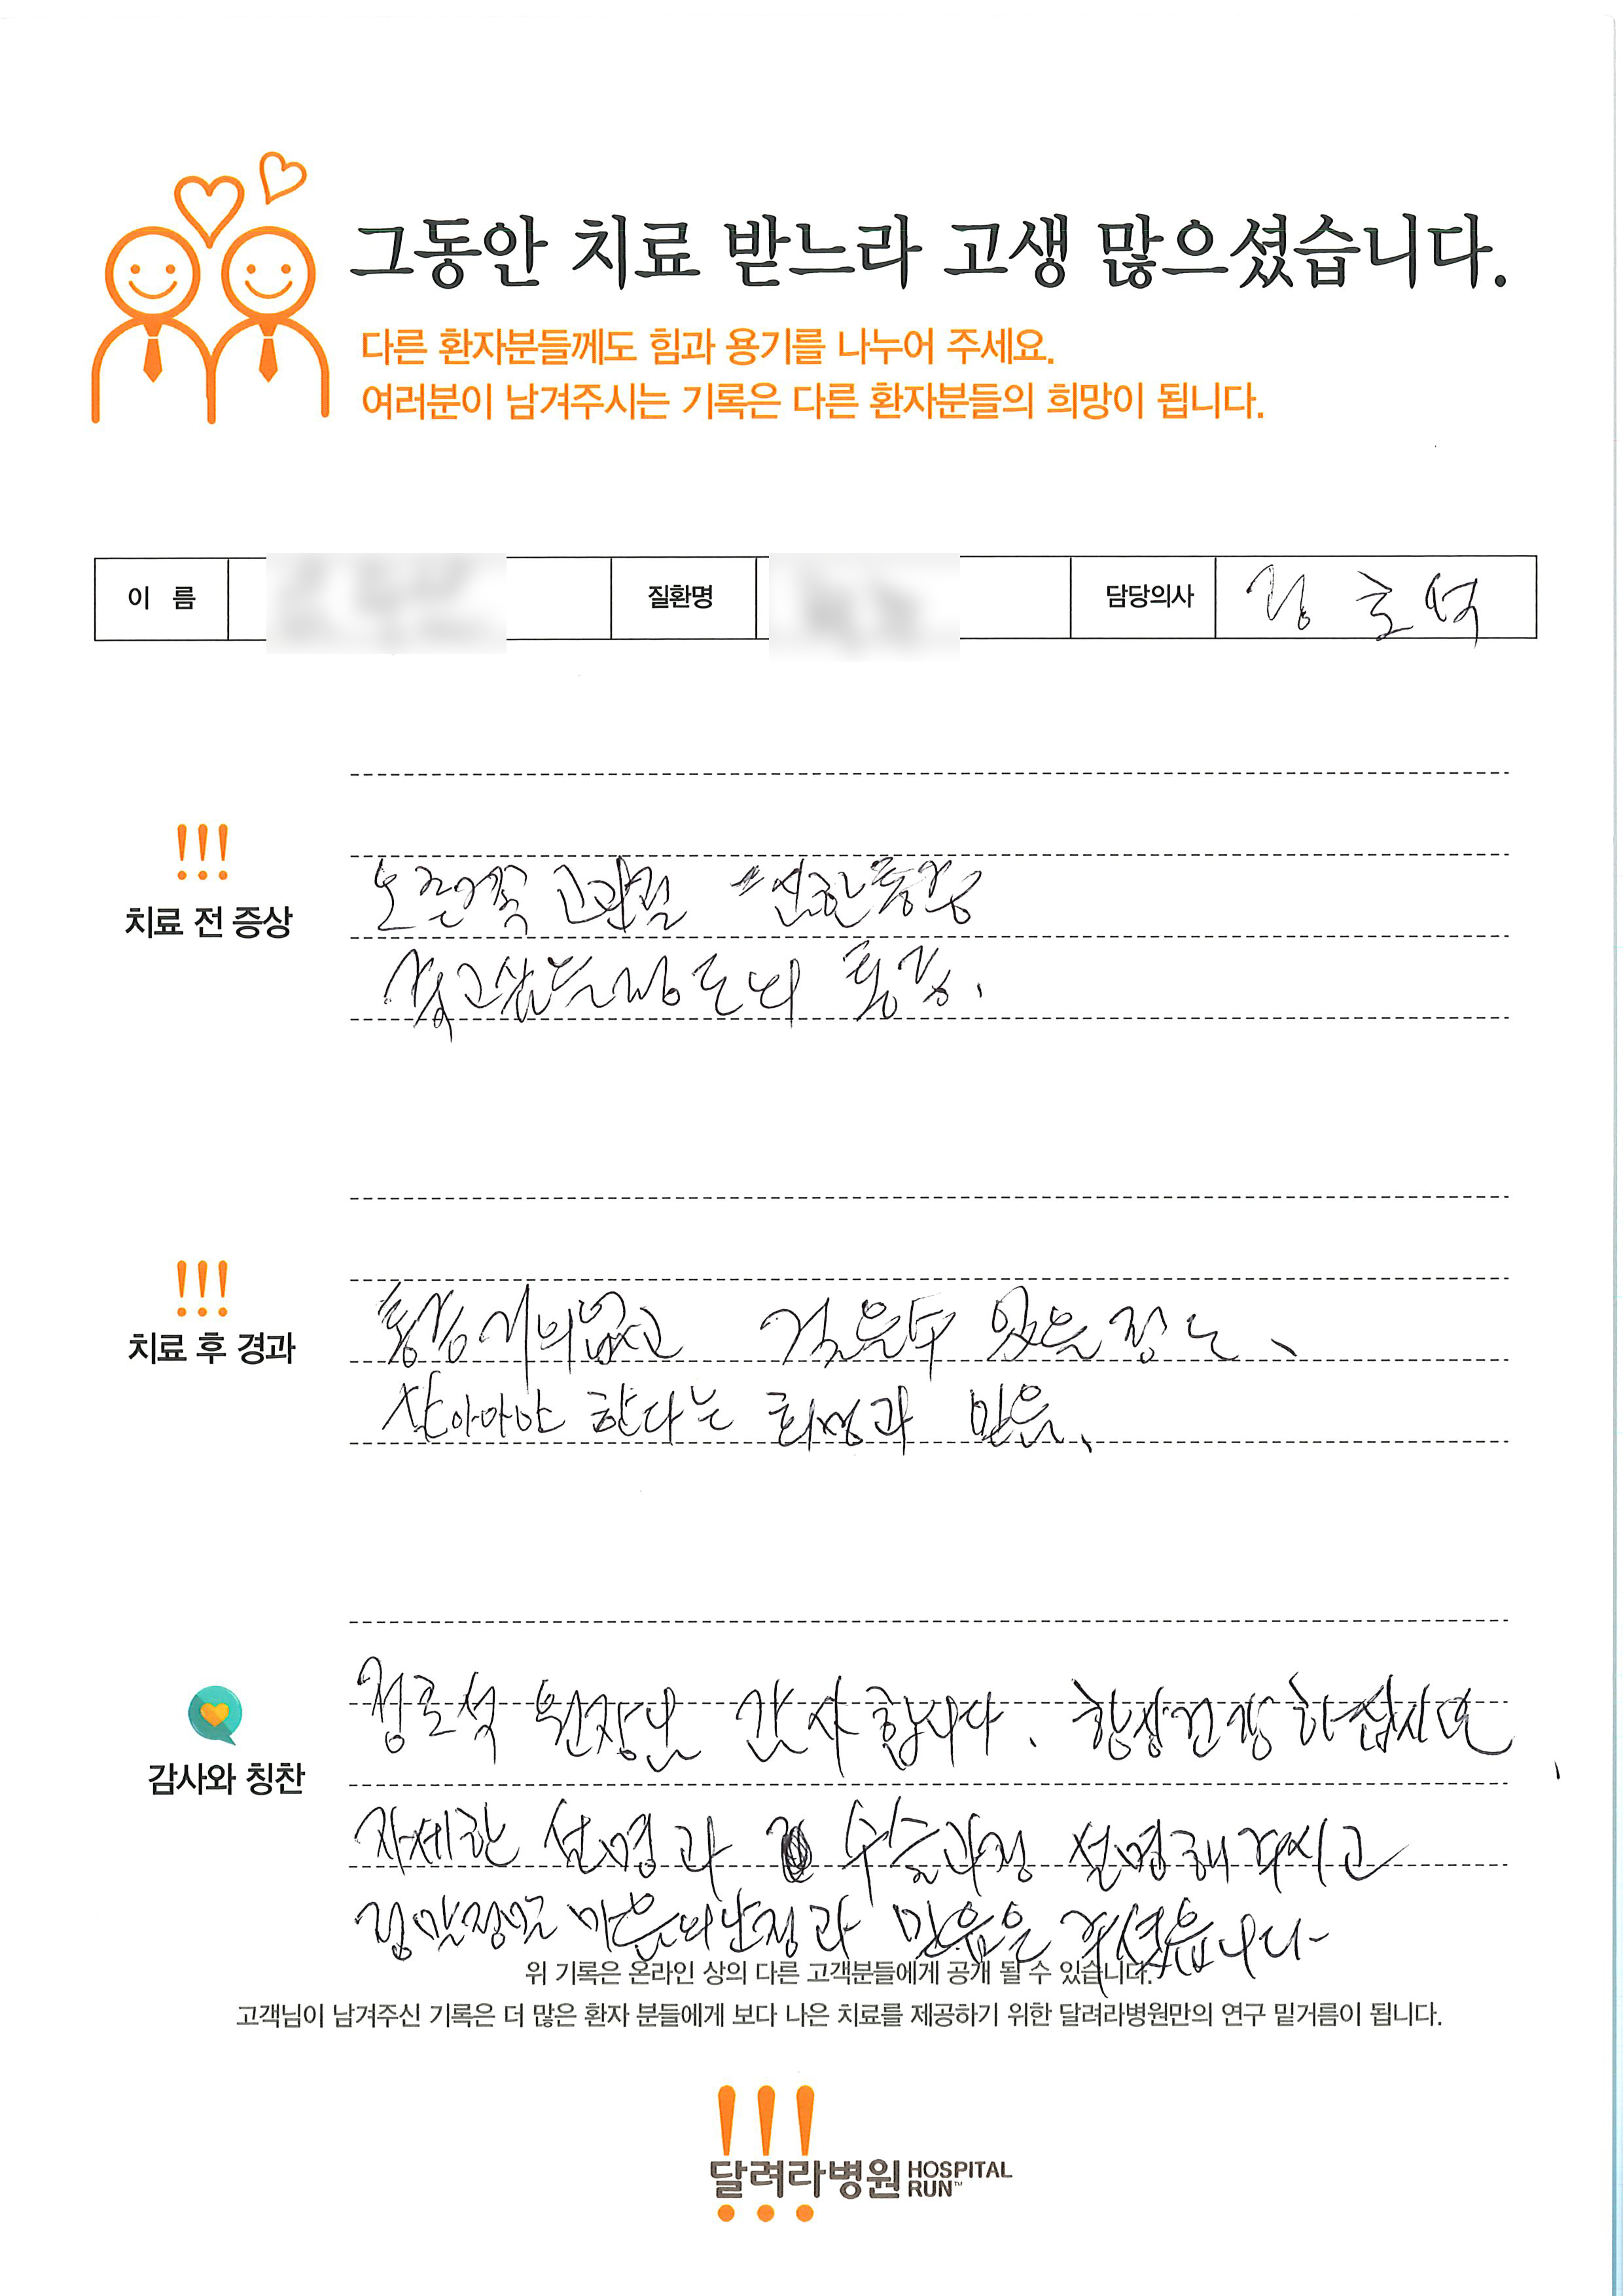 그동안 치료 받느라 고생 많으셨습니다.
다른 환자분들께도 힘과 용기를 나누어 주세요.
여러분이 남겨주시는 기록은 다른 환자분들의 희망이 됩니다.
이 름 질환명 담당의사 정호석
!!!
치료 전 증상
오른쪽 고관절 심한통증
죽고싶을정도의 통증.
!!!
치료 후 경과
통증거의없고 걷을수 있을정도.
살아야 한다는 희망과 믿음.
감사와 칭찬
정호석 원장님 감사합니다. 항상건강하십시요
자세한 설명과 수술과정 설명해주시고
정말정말 마음의안정과 믿음을 주셨습니다
위 기록은 온라인 상의 다른 고객분들에게 공개 될 수 있습니다.
고객님이 남겨주신 기록은 더 많은 환자 분들에게 보다 나은 치료를 제공하기 위한 달려라병원만의 연구 밑거름이 됩니다.
달려라병원 HOSPITAL RUN™